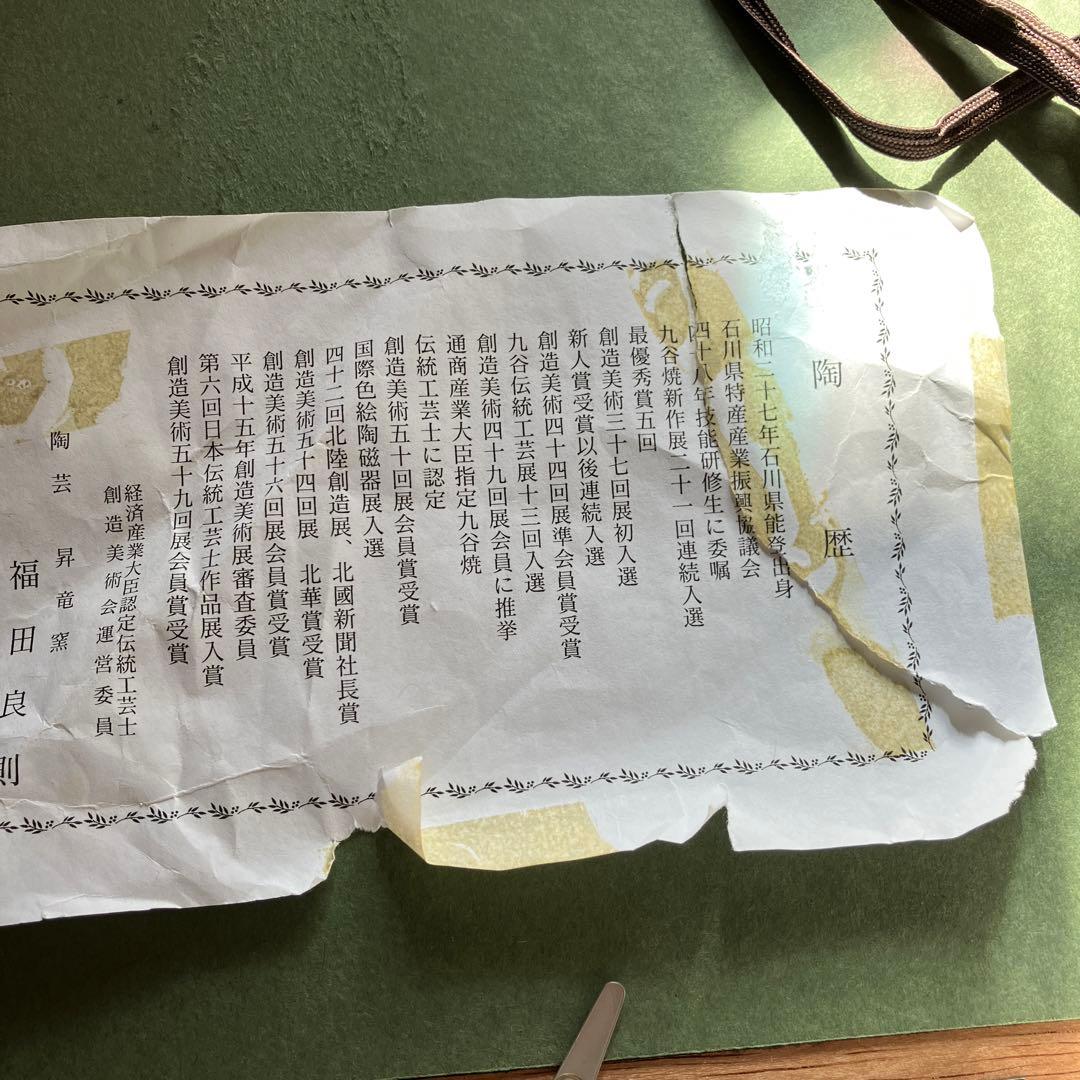 陶歴
昭和二十七年石川県能登出身
石川県特産産業振興協議会
四十八年技能研修生に委嘱
九谷焼新作展二十一回連続入選
最優秀賞五回
創造美術三十七回展初入選
新人賞受賞以後連続入選
創造美術四十四回展準会員賞受賞
九谷伝統工芸展十三回入選
創造美術四十九回展会員に推挙
通商産業大臣指定九谷焼
伝統工芸士に認定
創造美術五十回展会員賞受賞
国際色絵陶磁器展入選
四十二回北陸創造展、北國新聞社長賞
創造美術五十四回展 北華賞受賞
創造美術五十六回展会員賞受賞
平成十五年創造美術展審査委員
第六回日本伝統工芸士作品展入賞
創造美術五十九回展会員賞受賞
経済産業大臣認定伝統工芸士
創造美術会運営委員
陶芸 昇竜窯
福田良則